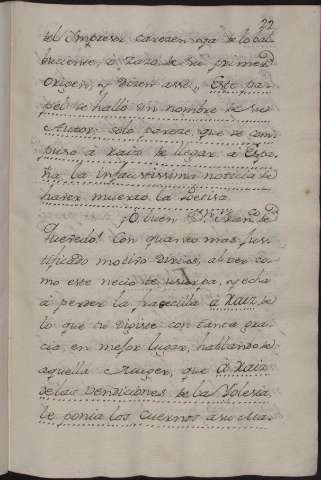 22
del Impresor
de su primer
origen, y dicen assi, Este pa-
pel se halló sin nombre de su
Autor: solo parece, que se com-
puso á raiz de llegar a Espa-
ña la infaustissima noticia de
haver muerto la
O buen Dn. Franco. de
Quevedo! Con quanto mas jus-
tificado motivo dirias, al ver co-
mo este necio te usurpa, y echa
á perder la frasecilla á raiz, de
lo que tu digiste con tanta gra-
cia, en mejor lugar, hablando de
aquella Muger, que á raiz
de las Bendiciones de la Yglesia,
le ponia los cuernos a su Ma-